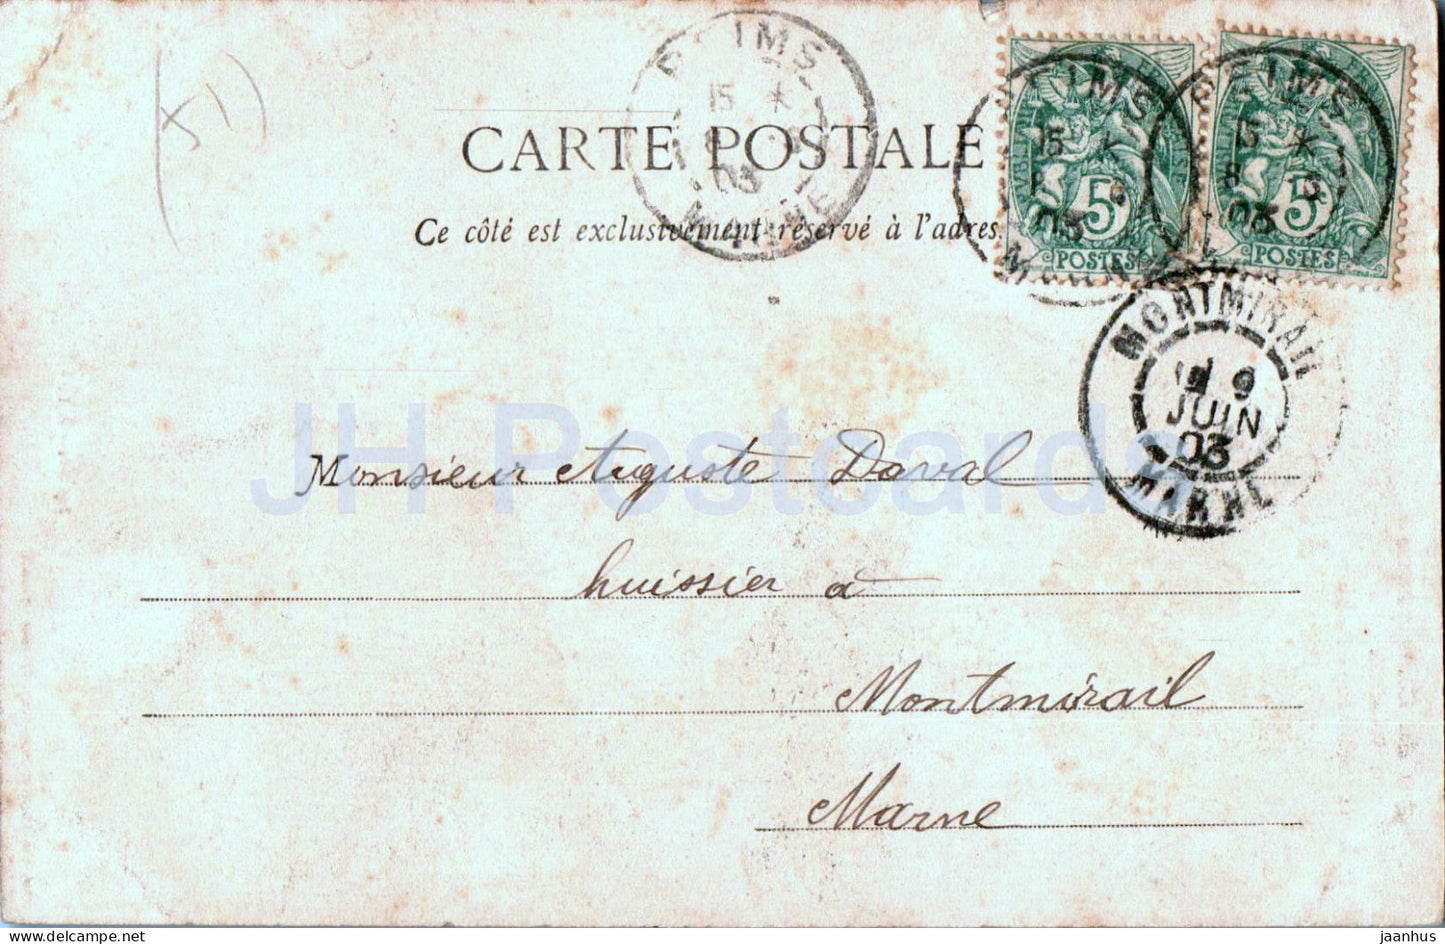 51)
REIMS
15 *
03
MARNE
REIMS
15 *
03
5
POSTES
REIMS
15 *
8
03
5
POSTES
CARTE POSTALE
Ce côté est exclusivement réservé à l'adres
MONTMIRAIL
9
JUIN
03
MARNE
JH Postcards
Monsieur Auguste Daval
huissier à
Montmirail
Marne
jaanhus